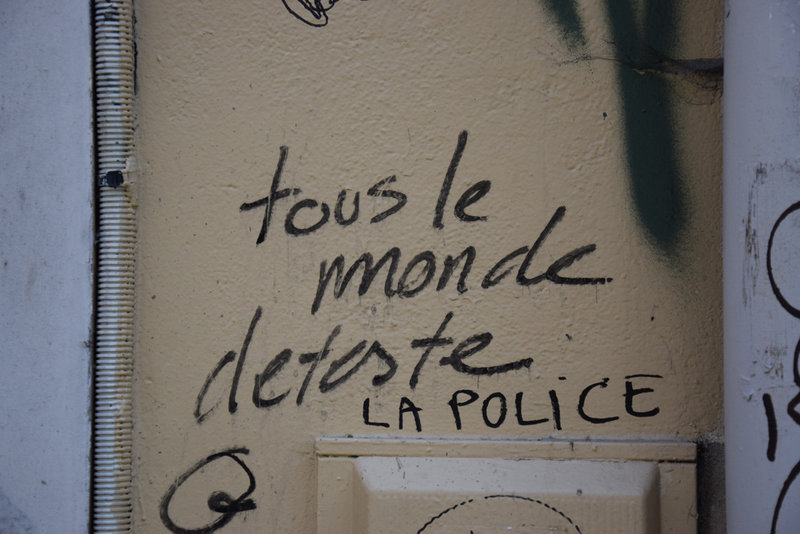 tous le
monde
deteste
LA POLICE